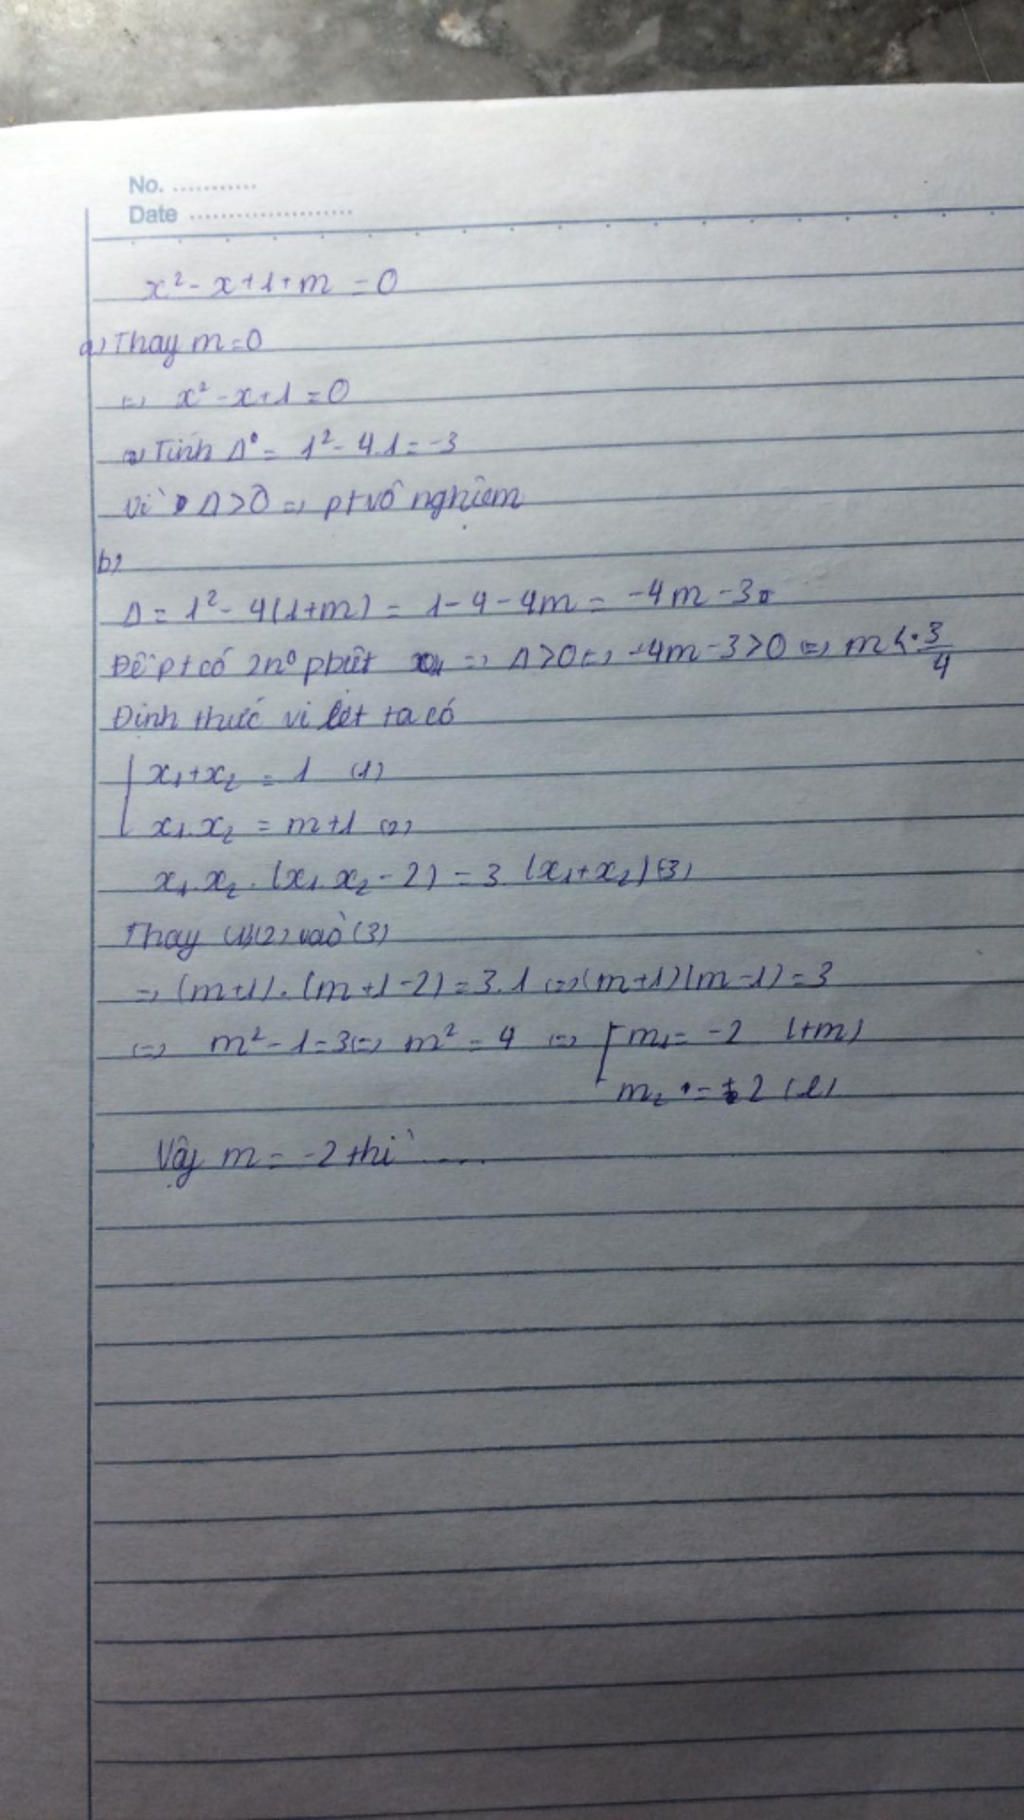 No. ...........
Date .....................
x² - x + 1 + m = 0
a) Thay m = 0
<=> x² - x + 1 = 0
Tính Δ = 1² - 4.1 = -3
Vì Δ > 0 => pt vô nghiệm
b)
Δ = 1² - 4(1+m) = 1 - 4 - 4m = -4m - 3
Để pt có 2n⁰ pbiệt => Δ > 0 <=> -4m - 3 > 0 <=> m < -3/4
Định thức vi ét ta có
x₁ + x₂ = 1 (1)
x₁.x₂ = m+1 (2)
x₁.x₂.(x₁.x₂ - 2) = 3(x₁+x₂) (3)
Thay (1)(2) vào (3)
=> (m+1).(m+1-2) = 3.1 <=> (m+1)(m-1) = 3
<=> m² - 1 = 3 <=> m² = 4 <=> [ m₁ = -2 (tm)
m₂ = 2 (l)
Vậy m = -2 thì ....